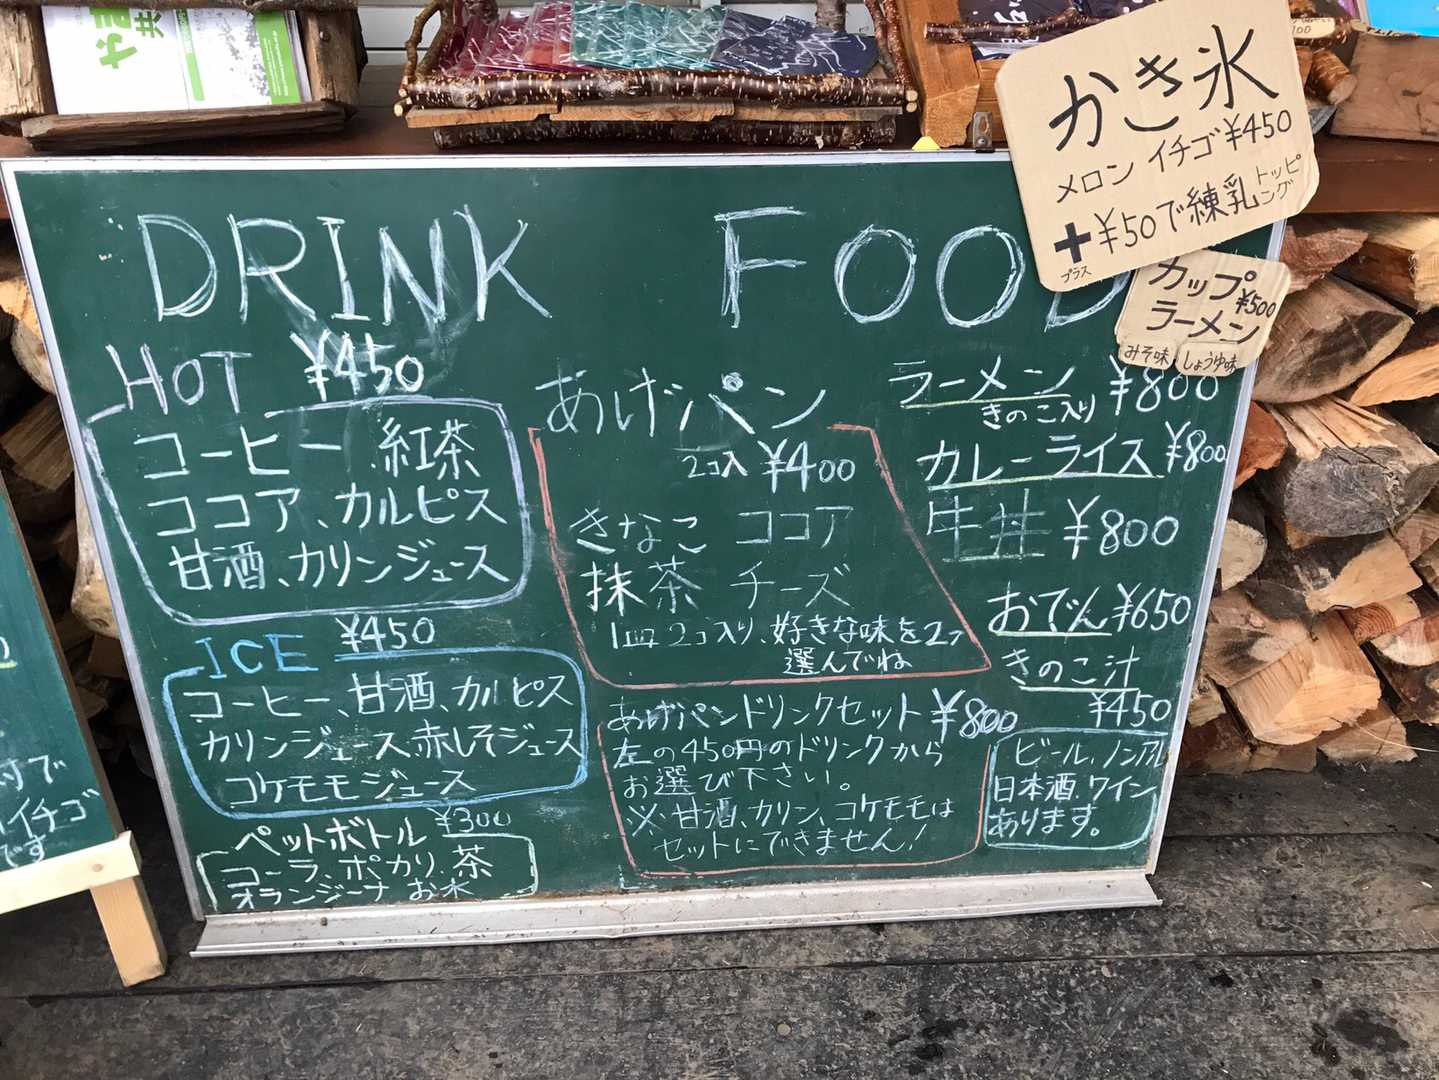 かき氷
メロン イチゴ ¥450
+ ¥50で練乳トッピング
プラス
カップ
ラーメン ¥500
みそ味 しょうゆ味
DRINK
HOT ¥450
コーヒー 紅茶
ココア、カルピス
甘酒、カリンジュース
ICE ¥450
コーヒー、甘酒、カルピス
カリンジュース、赤しそジュース
コケモモジュース
ペットボトル ¥300
コーラ、ポカリ、茶
オランジーナ お水
FOOD
あげパン
2コ入 ¥400
きなこ ココア
抹茶 チーズ
1皿2コ入り、好きな味を2ヶ
選んでね
あげパンドリンクセット ¥800
左の450円のドリンクから
お選び下さい。
※甘酒、カリン、コケモモは
セットにできません!
ラーメン ¥800
きのこ入り
カレーライス ¥800
牛丼 ¥800
おでん ¥650
きのこ汁
¥450
ビール、ノンアル
日本酒、ワイン
あります。
イチゴ
です